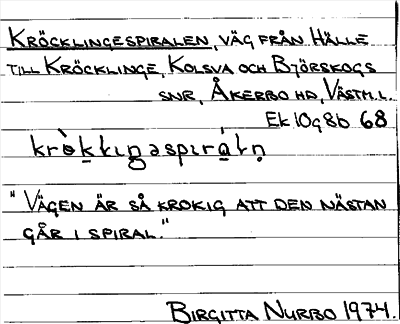 KRÖCKLINGESPIRALEN, VÄG FRÅN HÄLLE
TILL KRÖCKLINGE, KOLSVA OCH BJÖRSKOGS
SNR, ÅKERBO HD, VÄSTM. L.
EK 10G8b 68
"VÄGEN ÄR SÅ KROKIG ATT DEN NÄSTAN
GÅR I SPIRAL."
BIRGITTA NURBO 1974.